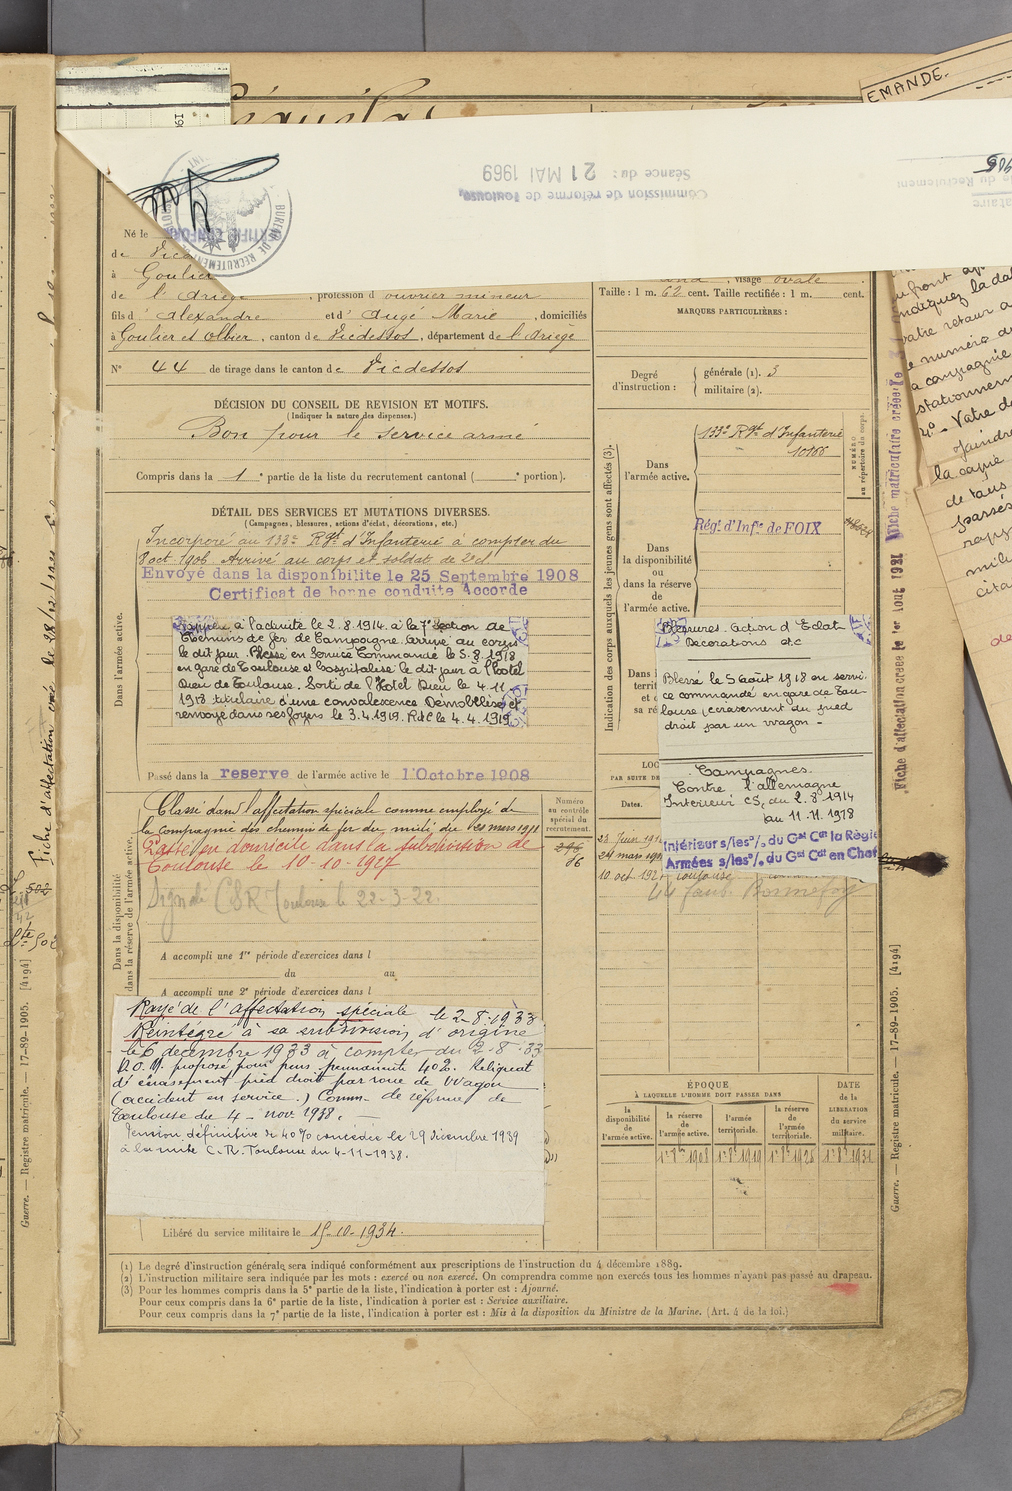 EMANDE.
Commission de réforme de Toulouse,
Séance du : 21 MAI 1969
BUREAU DE RECRUTEMENT
Né le
de Vicd
à Goulier
de l'Ariège, profession d'ouvrier mineur
fils d'Alexandre et d'Augé Marie, domiciliés
à Goulier et Olbier, canton de Vicdessos, département de l'Ariège
N° 44 de tirage dans le canton de Vicdessos
DÉCISION DU CONSEIL DE REVISION ET MOTIFS.
(Indiquer la nature des dispenses.)
Bon pour le service armé
Compris dans la 1 e partie de la liste du recrutement cantonal ( e portion).
DÉTAIL DES SERVICES ET MUTATIONS DIVERSES.
(Campagnes, blessures, actions d'éclat, décorations, etc.)
Dans l'armée active.
Incorporé au 133e Rgt d'Infanterie à compter du
8 oct 1906 Arrivé au corps et soldat de 2e cl
Envoyé dans la disponibilité le 25 Septembre 1908
Certificat de bonne conduite Accordé
Rappelé à l'activité le 2.8.1914. à la 7e Section de
Chemins de fer de Campagne. Arrivé au corps
le dit jour. Blessé en Service Commandé le 5.8.1918
en gare de Toulouse et hospitalisé le dit jour à l'Hotel
Dieu de Toulouse. Sorti de l'Hotel Dieu le 4.11
1918 titulaire d'une convalescence Démobilisé et
renvoyé dans ses foyers le 3.4.1919. RdC le 4.4.1919
Passé dans la reserve de l'armée active le 1 Octobre 1908
Dans la disponibilité
dans la réserve de l'armée active.
Classé dans l'affectation spéciale comme employé de
la compagnie des chemins de fer du midi, du 20 mars 1911
Passé en domicile dans la subdivision de
Toulouse le 10-10-1917
Toulouse le 22-3-22.
A accompli une 1re période d'exercices dans l
du au
A accompli une 2e période d'exercices dans l
Rayé de l'affectation spéciale le 2-8-1933
Réintégré à sa subdivision d'origine
le 6 décembre 1933 à compter du 2-8-33
proposé pour pens. permanente 40%. Reliquat
d'écrasement pied droit par roue de Wagon
(accident en service.) Comm. de réforme de
Toulouse du 4 - nov. 1938. —
Pension définitive de 40% concédée le 29 décembre 1939
à la suite C.R. Toulouse du 4-11-1938.
Libéré du service militaire le 15-10-1934.
Numéro
au contrôle
spécial du
recrutement.
86
, visage ovale.
Taille : 1 m. 62 cent. Taille rectifiée : 1 m. cent.
MARQUES PARTICULIÈRES :
Degré
d'instruction :
générale (1). 3
militaire (2).
Indication des corps auxquels les jeunes gens sont affectés (3).
NUMÉRO
au répertoire du corps.
Dans
l'armée active.
133e Rgt d'Infanterie
Rég.t d'Inf.ie de FOIX
Dans
la disponibilité
ou
dans la réserve
de
l'armée active.
Dans l
territ
et d
sa ré
Blessures. Action d'Eclat
Décorations etc
Blessé le 5 Août 1918 en servi-
ce commandé en gare de Tou-
louse, écrasement du pied
droit par un wagon -
Campagnes.
Contre l'Allemagne
Intérieur CS, du 2.8.1914
au 11.11.1918
Intérieur s/les°/. du Gal Cdt la Régio
Armées s/les°/. du Gal Cdt en Chef
LOC
PAR SUITE DE
Dates.
10 oct 192 Toulouse
44 faub. Bonnefoy
ÉPOQUE
À LAQUELLE L'HOMME DOIT PASSER DANS
la
disponibilité
de
l'armée active.
la réserve
de
l'armée active.
l'armée
territoriale.
la réserve
de
l'armée
territoriale.
DATE
de la
LIBÉRATION
du service
militaire.
Fiche matriculaire créée le
Fiche d'affectation créée le 1er Aout 1921
Guerre. — Registre matricule. — 17-89-1905. [4194]
Guerre. — Registre matricule. — 17-89-1905. [4194]
(1) Le degré d'instruction générale sera indiqué conformément aux prescriptions de l'instruction du 4 décembre 1889.
(2) L'instruction militaire sera indiquée par les mots : exercé ou non exercé. On comprendra comme non exercés tous les hommes n'ayant pas passé au drapeau.
(3) Pour les hommes compris dans la 5e partie de la liste, l'indication à porter est : Ajourné.
Pour ceux compris dans la 6e partie de la liste, l'indication à porter est : Service auxiliaire.
Pour ceux compris dans la 7e partie de la liste, l'indication à porter est : Mis à la disposition du Ministre de la Marine. (Art. 4 de la loi.)